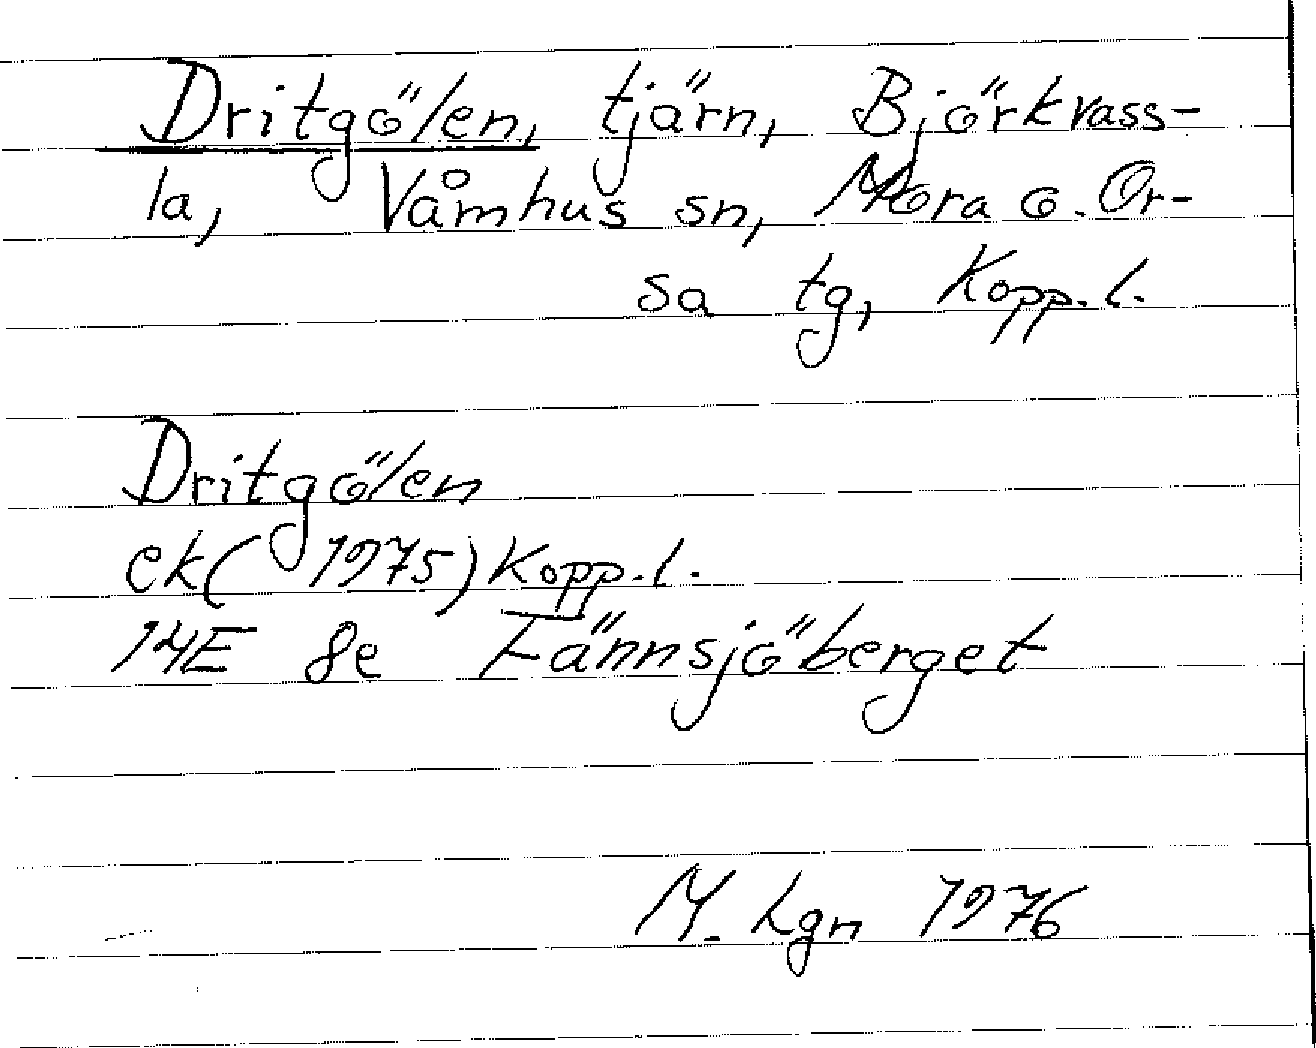 Dritgölen, tjärn, Björkvass-
la, Våmhus sn, Mora o. Or-
sa tg, Kopp. l.
Dritgölen
ek (1975) Kopp. l.
14E 8e Fännsjöberget
M. Lgn 1976